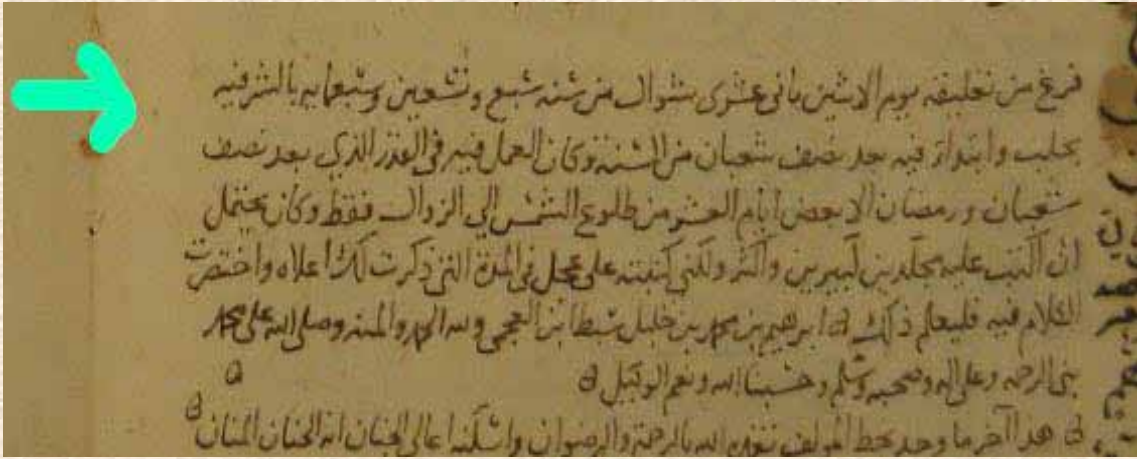 فرغ من تعليقه يوم الاثنين ثاني عشرى شوال من سنة سبع وتسعين وسبعمايه بالشرفيه
بحلب وابتداؤ فيه بعد نصف شعبان من السنة وكان العمل فيه في القدر الذي بعد نصف
شعبان ورمضان الا بعض ايام العشر من طلوع الشمس الي الزوال فقط وكان يحتمل
ان اكتب عليه مجلدين كبيرين واكثر ولكني كتبته على عجل في المدة التي ذكرت لك اعلاه واختصرت
الكلام فيه فليعلم ذلك ابرهيم بن محمد بن خليل سبط ابن العجمي ولله الحمد والمنه وصلى الله على محمد
نبي الرحمه وعلى اله وصحبه وسلم وحسبنا الله ونعم الوكيل
هذا آخر ما وجد بخط المؤلف تغمده الله بالرحمة والرضوان واسكنه اعالي الجنان انه الحنان المنان